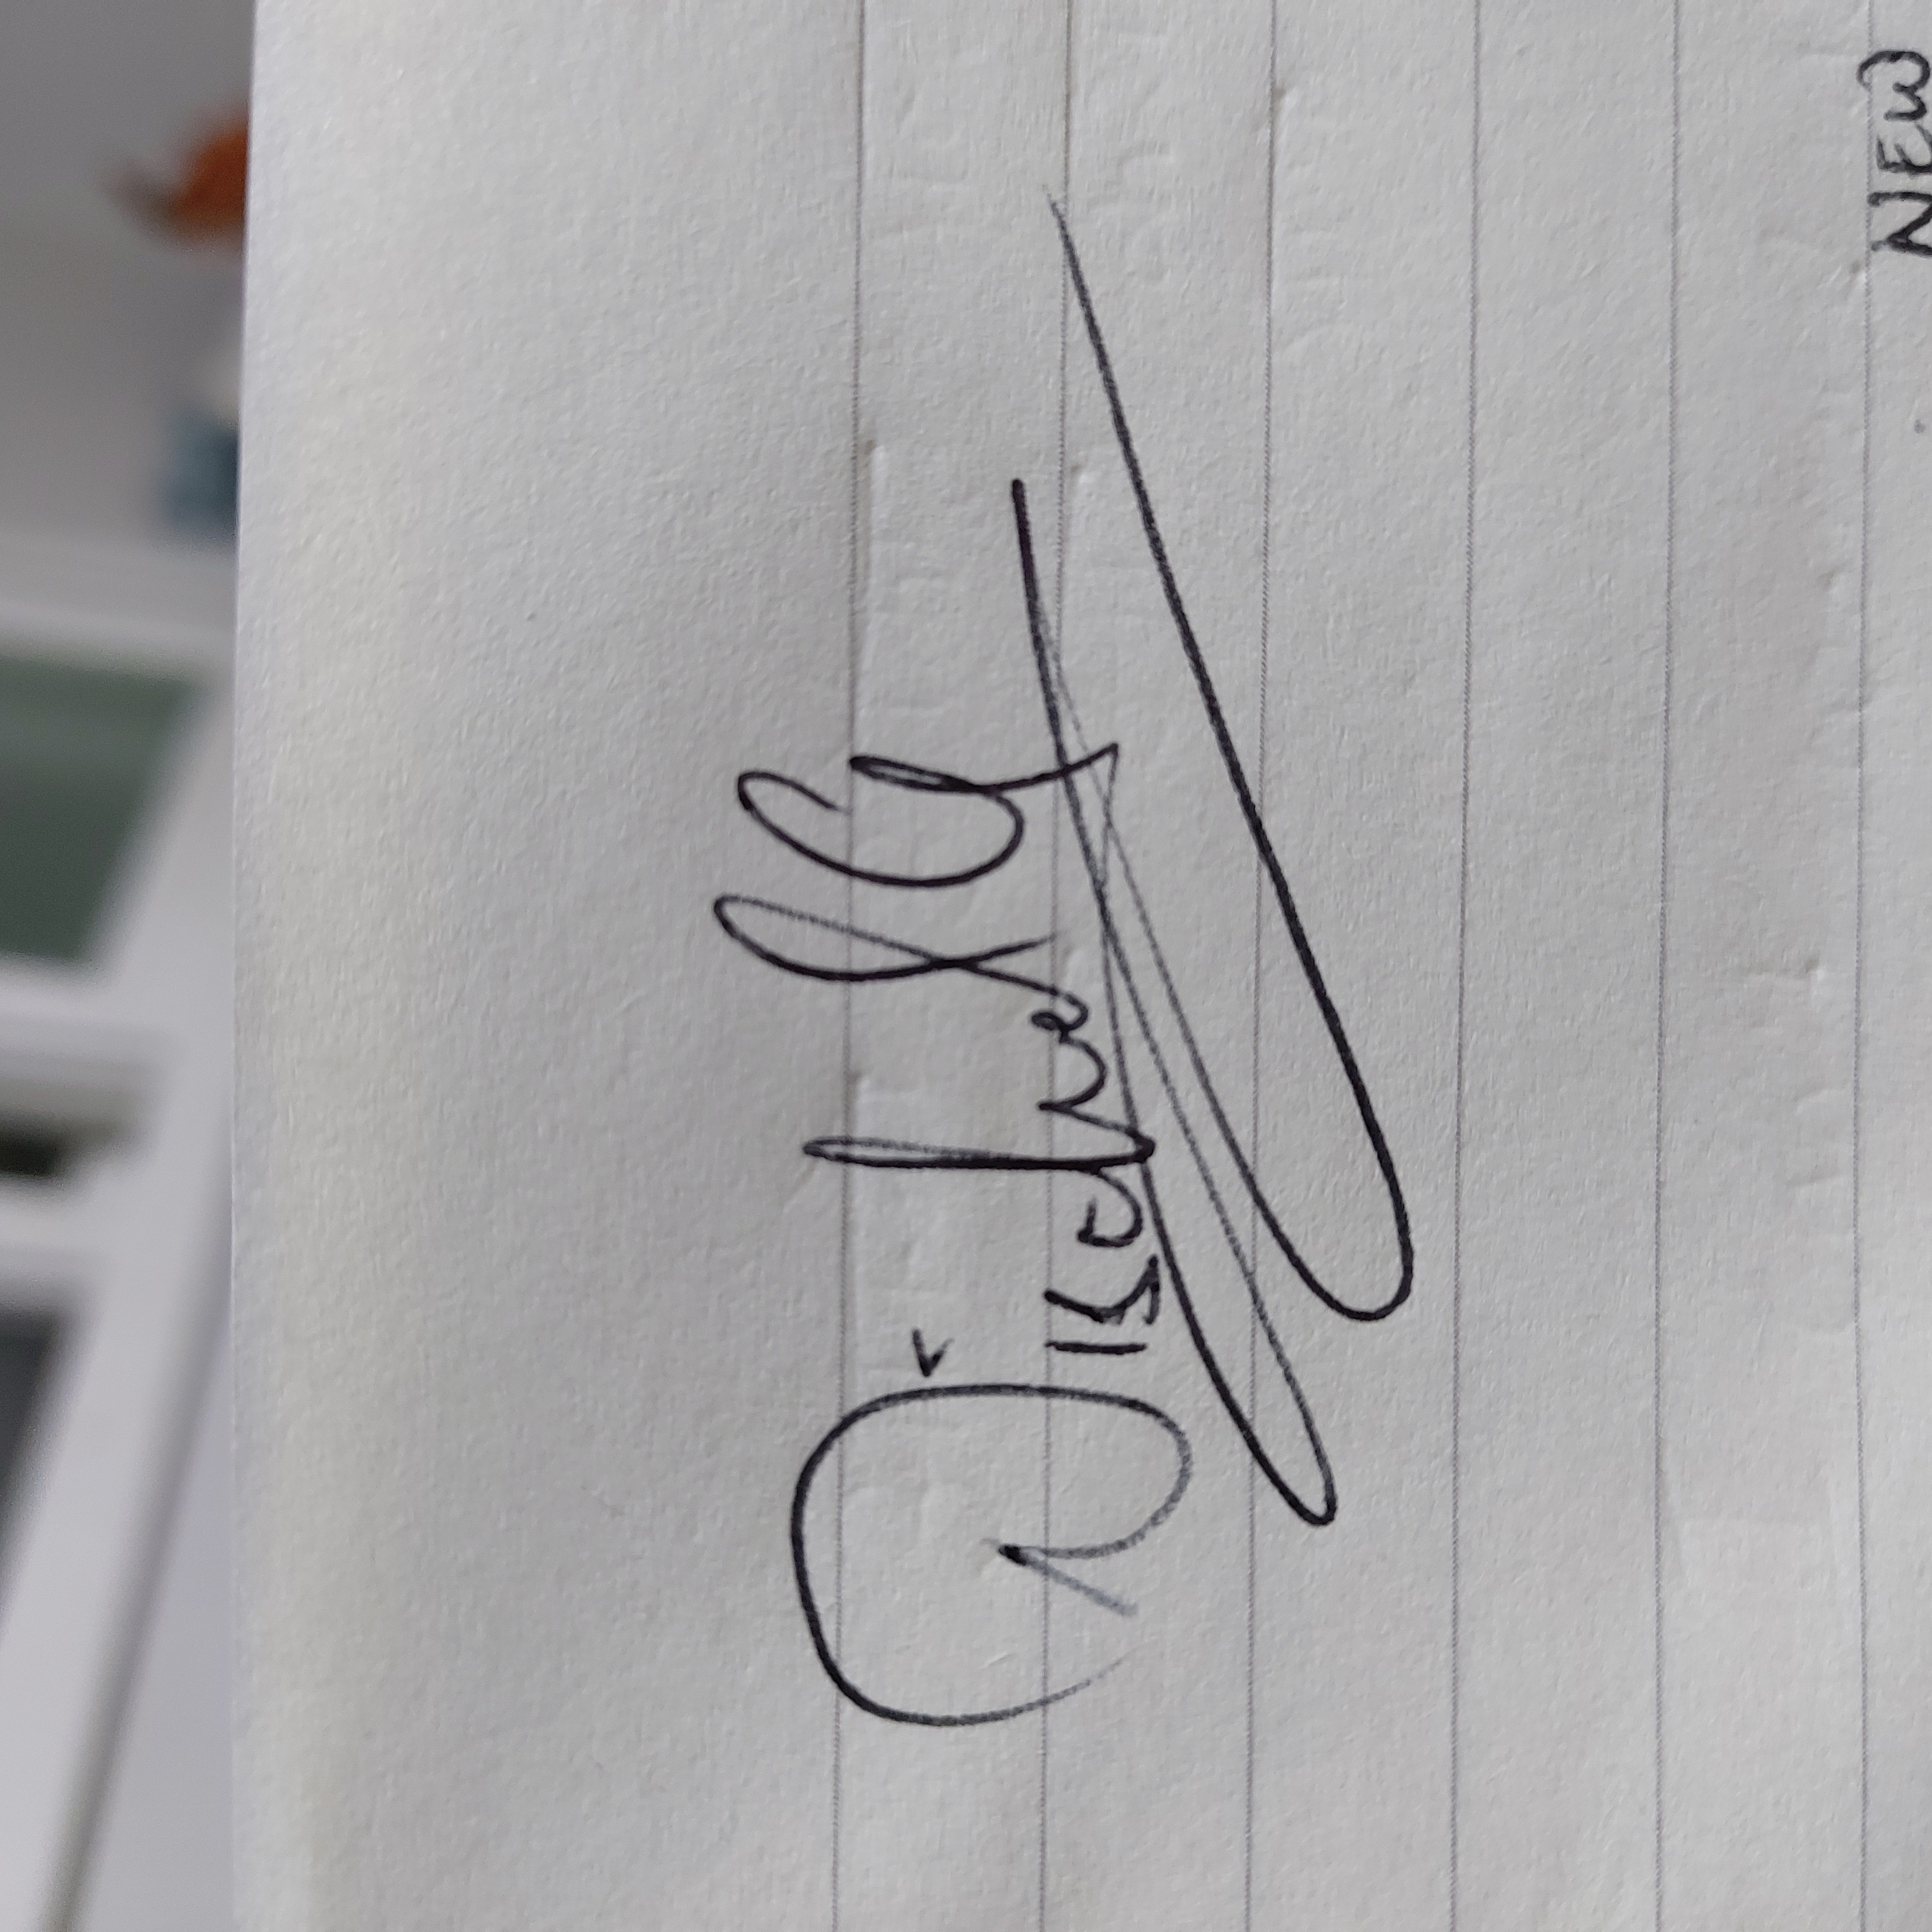 Dischel G
NEW